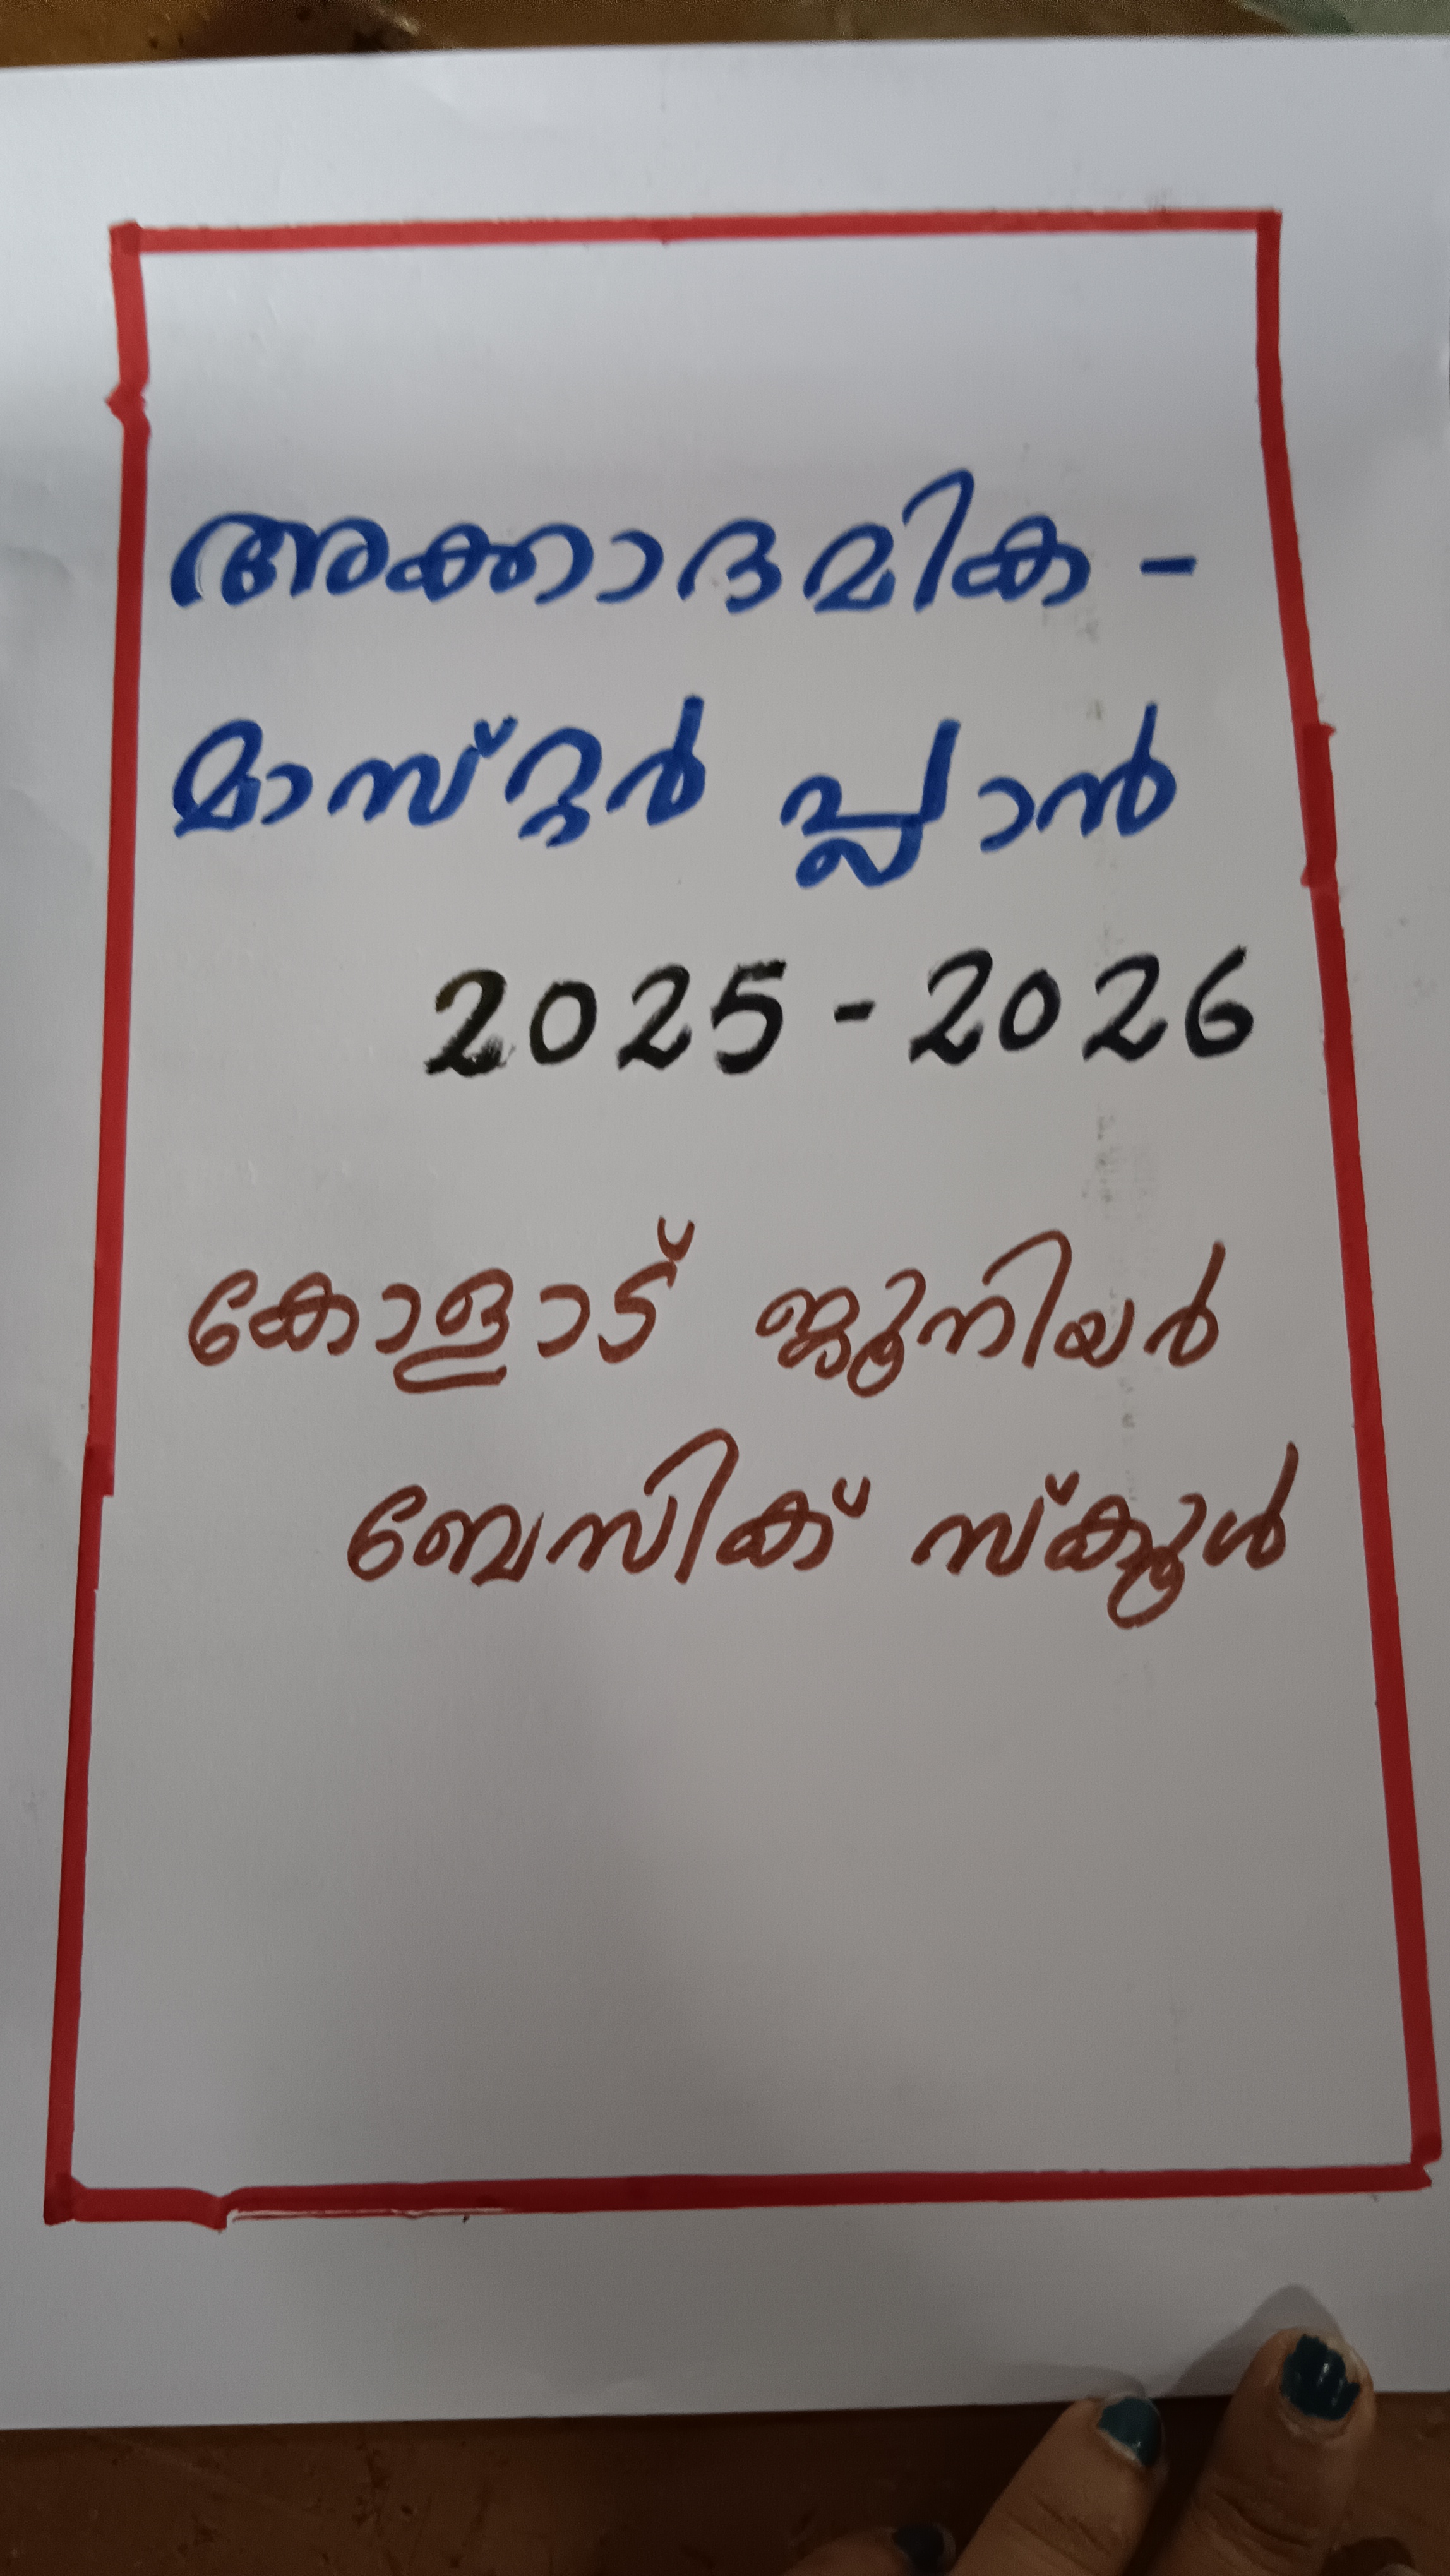 അക്കാദമിക -
മാസ്റ്റർ പ്ലാൻ
2025 - 2026
കോളാട് ജൂനിയർ
ബേസിക് സ്കൂൾ